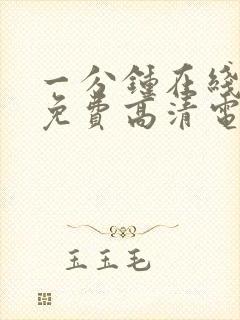 一分鍾在綫
免費高清電
玉玉毛